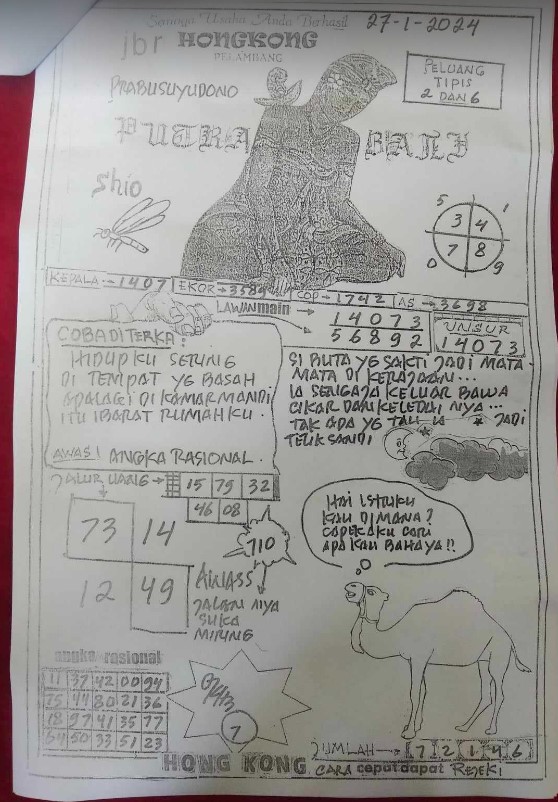 Semoga Usaha Anda Berhasil
27-1-2024
jbr HONGKONG
PELAMBANG
PRABUSUYUDONO
PELUANG
TIPIS
2 DAN 6
PUTRA
Shio
5 1
3 4
7 8
0 9
KEPALA → 1407
EKOR → 3589
COP → 1742
AS → 3698
LAWAN main
14073
56892
UNSUR
14073
COBA DITERKA :
HIDUPKU SERING
DI TEMPAT YG BASAH
APALAGI DI KAMAR MANDI
ITU IBARAT RUMAHKU .
AWAS! ANGKA RASIONAL .
SI BUTA YG SAKTI JADI MATA-
MATA DI KERAJAAN...
IA SENGAJA KELUAR BAWA
CIKAR DAN KELEDAI NYA...
TAK ADA YG TAU IA JADI
TELIK SANDI
JALUR UANG → 15 79 32
46 08
73 14
12 49
710
AWASS
JALAN NYA
SUKA
MIRING
HAI ISTRIKU
KAU DIMANA ?
CAPEK AKU CARI
APA KAU BAHAYA !!
angka rasional
11 37 42 00 94
75 44 80 21 36
18 97 41 35 77
54 50 33 51 23
7
JUMLAH → 7 2 1 4 6
HONG KONG CARA cepat dapat REJEKI